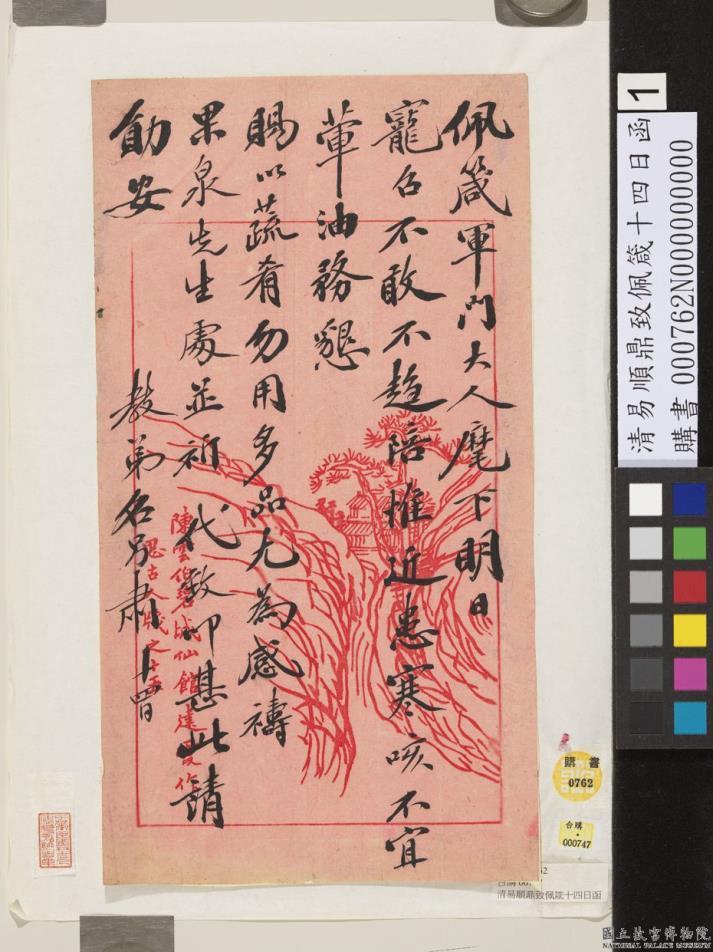 佩箴軍門大人麾下明日
寵召不敢不趨陪惟近患寒咳不宜
葷油務懇
賜以蔬肴勿用多品尤為感禱
果泉先生處並祈代致叩甚此請
勛安
教弟名另肅 十四日
陳雲伯碧城仙館
思古人牋之十五
1
清易順鼎致佩箴十四日函
購書 000762N000000000000
購書
0762
台購
000747
清易順鼎致佩箴十四日函
國立故宮博物院
NATIONAL PALACE MUSEUM